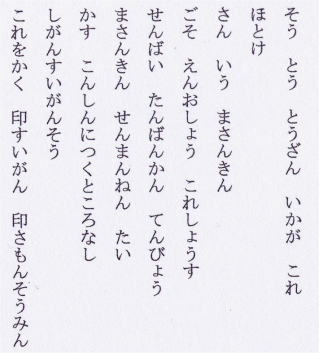 そう　とう　とうざん　いかが　これ
ほとけ
さん　いう　まさんきん
ごそ　えんおしょう　これしょうす
せんばい　たんばんかん　てんびょう
まさんきん　せんまんねん　たい
かす　こんしんにつくところなし
しがんすいがんそう
これをかく　印すいがん　印さもんそうみん